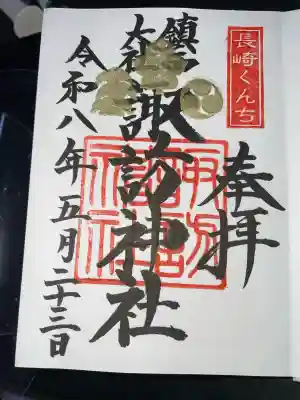 長崎くんち
奉拝
鎮西
大社
諏訪神社
令和八年五月二十三日